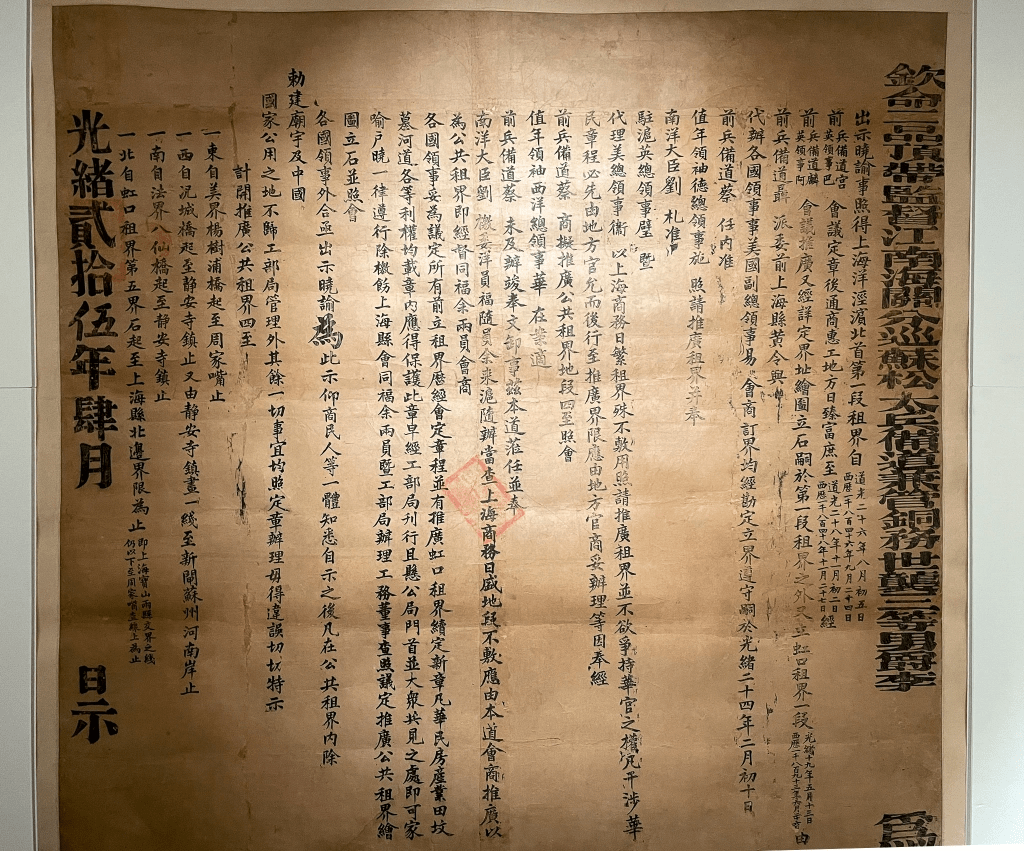 欽命二品頂帶監督江南海關分巡蘇松太兵備道兼管銅務世襲一等男爵李 為
出示曉諭事照得上海洋涇濱北首第一段租界自道光二十六年八月初五日西歷一千八百四十六年九月二十四日
前兵備道宮英領事巴會議定章後通商惠工地方日臻富庶至道光二十八年十一月初二日西歷一千八百四十八年十一月二十七日經
前兵備道麟英領事阿會議推廣又經詳定界址繪圖立石嗣於第一段租界之外又立虹口租界一段光緒十九年五月十三日由
前兵備道聶 派委前上海縣黃令與
代辦各國領事事美國副總領事易 會商訂界均經勘定立界遵守嗣於光緒二十四年二月初十日
前兵備道蔡 任內准
值年領袖德總領事施 照請推廣租界并奉
南洋大臣劉 札准
駐滬英總領事璧 暨
代理美總領事衛 以上海商務日繁租界殊不敷用照請推廣租界並不欲爭持華官之權宄干涉華
民章程必先由地方官允而後行至推廣界限應由地方官商妥辦理等因奉經
前兵備道蔡 商擬推廣公共租界地段四至照會
值年領袖西洋總領事華 在案適
前兵備道蔡 未及辦竣奉文卸事茲本道蒞任並奉
南洋大臣劉 檄委洋員福隨員余來滬隨辦當查上海商務日盛地段不敷應由本道會商推廣以
為公共租界即經督同福余兩員會商
各國領事妥為議定所有前立租界歷經會定章程並有推廣虹口租界續定新章凡華民房產業田坟
墓河道各等利權均載章內應得保護此章早經工部局刊行且懸公局門首並大衆共見之處即可家
喻戶曉一律遵行除檄飭上海縣會同福余兩員暨工部局辦理工務董事查照議定推廣公共租界繪
圖立石並照會
各國領事外合亟出示曉諭為此示仰商民人等一體知悉自示之後凡在公共租界內除
勅建廟宇及中國
國家公用之地不歸工部局管理外其餘一切事宜均照定章辦理毋得違誤切切特示
計開推廣公共租界四至
一東自美界楊樹浦橋起至周家嘴止
一西自泥城橋起至靜安寺鎮止又由靜安寺鎮畫一綫至新閘蘇州河南岸止
一南自法界八仙橋起至靜安寺鎮止
一北自虹口租界第五界石起至上海縣北邊界限為止即上海寶山兩縣交界之綫仍以下至周家嘴直綫上為止
光緒貳拾伍年肆月 日示